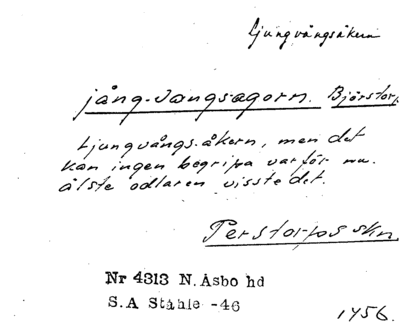 Ljungvångsåkern
jång-vangsagorn. Björstorp
Ljungvångs-åkern, men det
kan ingen begripa varför nu.
älste odlaren visste det.
Perstorps skn
Nr 4313 N. Åsbo hd
S.A Ståhle -46
1456.